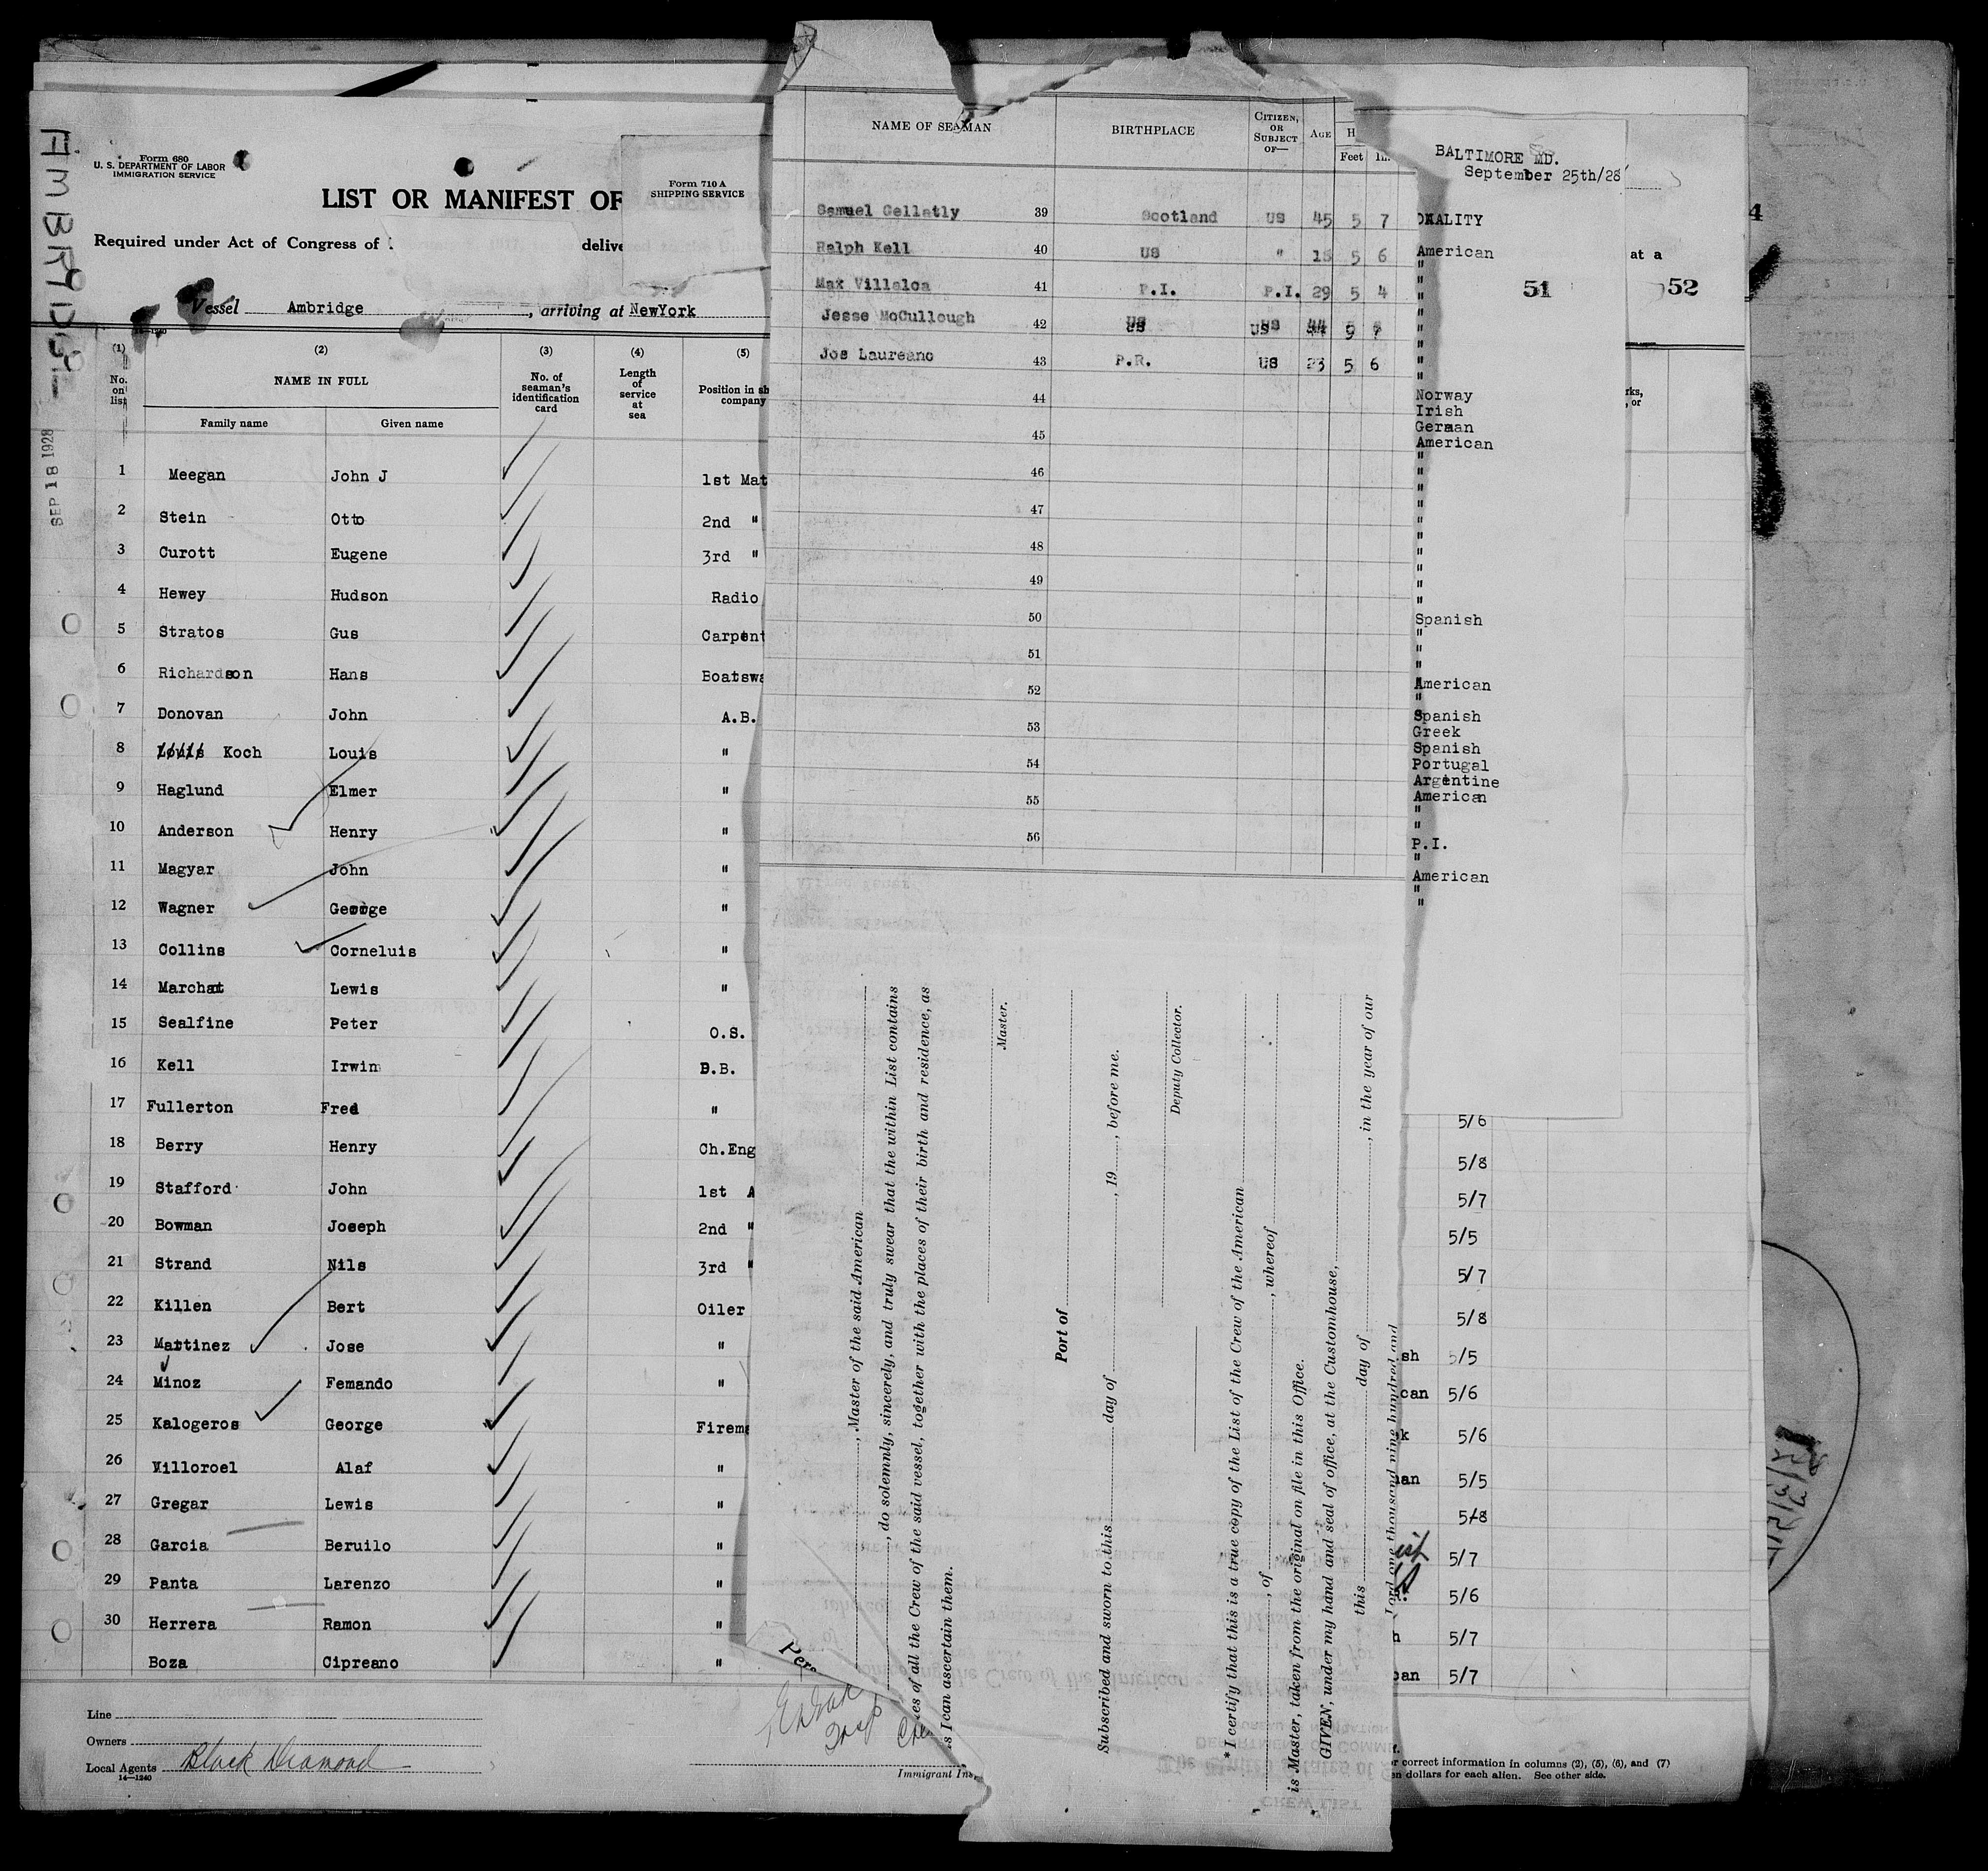 AMBRIDGE
SEP 18 1928
Form 680
U. S. DEPARTMENT OF LABOR
IMMIGRATION SERVICE
LIST OR MANIFEST OF
Required under Act of Congress of
delive
Form 710 A
SHIPPING SERVICE
Vessel Ambridge, arriving at NewYork
(1) (2) (3) (4) (5)
No. on list
NAME IN FULL
Family name Given name
No. of seaman's identification card
Length of service at sea
Position in sh
company
1 Meegan John J 1st Mat
2 Stein Otto 2nd "
3 Curott Eugene 3rd "
4 Hewey Hudson Radio
5 Stratos Gus Carpent
6 Richardson Hans Boatswa
7 Donovan John A.B.
8 Louis Koch Louis "
9 Haglund Elmer "
10 Anderson Henry "
11 Magyar John "
12 Wagner George "
13 Collins Corneluis "
14 Marchat Lewis "
15 Sealfine Peter O.S.
16 Kell Irwin D.B.
17 Fullerton Fred "
18 Berry Henry Ch.Eng
19 Stafford John 1st A
20 Bowman Joseph 2nd "
21 Strand Nils 3rd "
22 Killen Bert Oiler
23 Martinez Jose "
24 Minoz Femando "
25 Kalogeros George Firema
26 Villoroel Alaf "
27 Gregar Lewis "
28 Garcia Beruilo "
29 Panta Larenzo "
30 Herrera Ramon "
Boza Cipreano "
Line
Owners
Local Agents Black Diamond
14—1240
Immigrant Ins
NAME OF SEAMAN
BIRTHPLACE
CITIZEN, OR SUBJECT OF—
AGE
H
Feet In.
Samuel Gellatly 39 Scotland US 45 5 7
Ralph Kell 40 US " 18 5 6
Max Villaloa 41 P.I. P.I. 29 5 4
Jesse McCullough 42 US US 44 5 7
Jos Laureano 43 P.R. US 23 5 6
44
45
46
47
48
49
50
51
52
53
54
55
56
, Master of the said American
, do solemnly, sincerely, and truly swear that the within List contains
es of all the Crew of the said vessel, together with the places of their birth and residence, as
s I can ascertain them.
Master.
Port of
Subscribed and sworn to this day of , 19 , before me.
Deputy Collector.
*I certify that this is a true copy of the List of the Crew of the American
, of , whereof
is Master, taken from the original on file in this Office.
GIVEN, under my hand and seal of office, at the Customhouse,
this day of , in the year of our
Lord one thousand nine hundred and
BALTIMORE MD.
September 25th/28
ONALITY
American
"
"
"
"
"
"
"
Norway
Irish
German
American
"
"
"
"
"
"
"
"
"
"
Spanish
"
"
"
American
"
Spanish
Greek
Spanish
Portugal
Argentine
American
"
"
P.I.
"
American
"
"
at a
51
52
4
rks,
, or
5/6
5/8
5/7
5/5
5/7
5/8
sh 5/5
can 5/6
k 5/6
an 5/5
5/8
5/7
5/6
n 5/7
can 5/7
r correct information in columns (2), (5), (6), and (7)
en dollars for each alien. See other side.